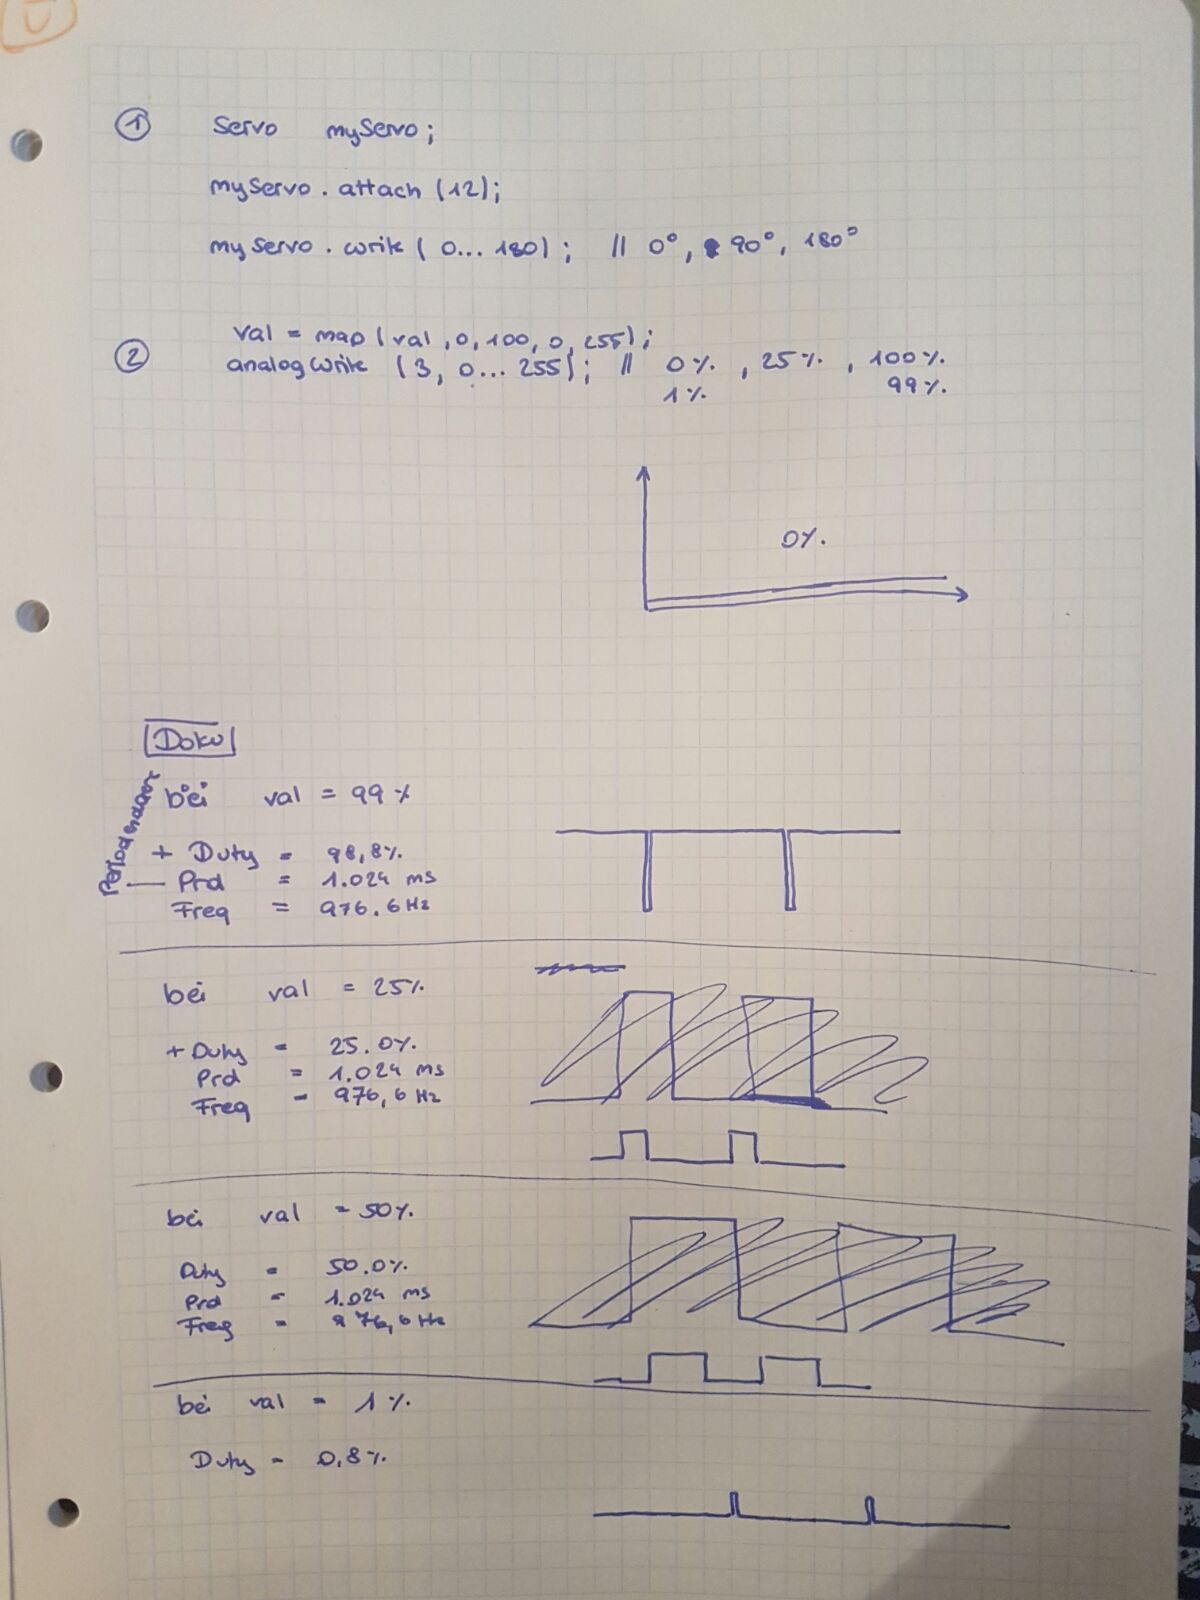 ① Servo myServo;
myServo.attach (12);
myServo.write ( 0...180); // 0°, 90°, 180°
② val = map (val, 0, 100, 0, 255);
analogWrite (3, 0...255); // 0%, 25%, 100%
1% 99%
0%
Doku
bei val = 99%
Periodendauer
+ Duty = 98,8%
Prd = 1.024 ms
Freq = 976.6 Hz
bei val = 25%
+ Duty = 25.0%
Prd = 1.024 ms
Freq = 976,6 Hz
bei val = 50%
Duty = 50.0%
Prd = 1.024 ms
Freq = 976,6 Hz
bei val = 1%
Duty = 0,8%